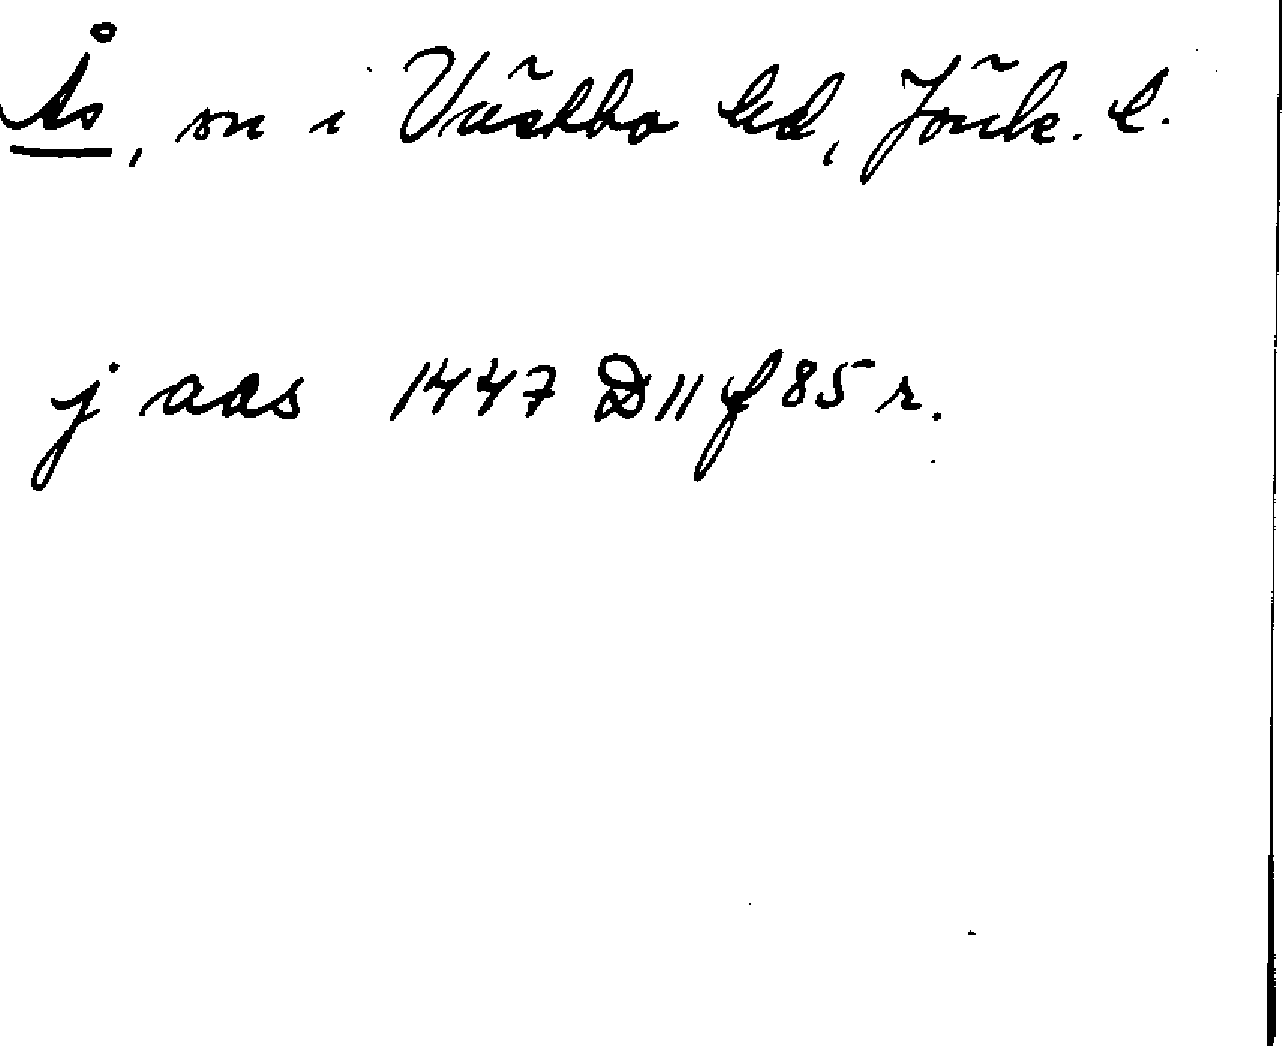 Ås, sn i Västbo hd, Jönk. l.
j aas 1447 D 11 f 85 r.